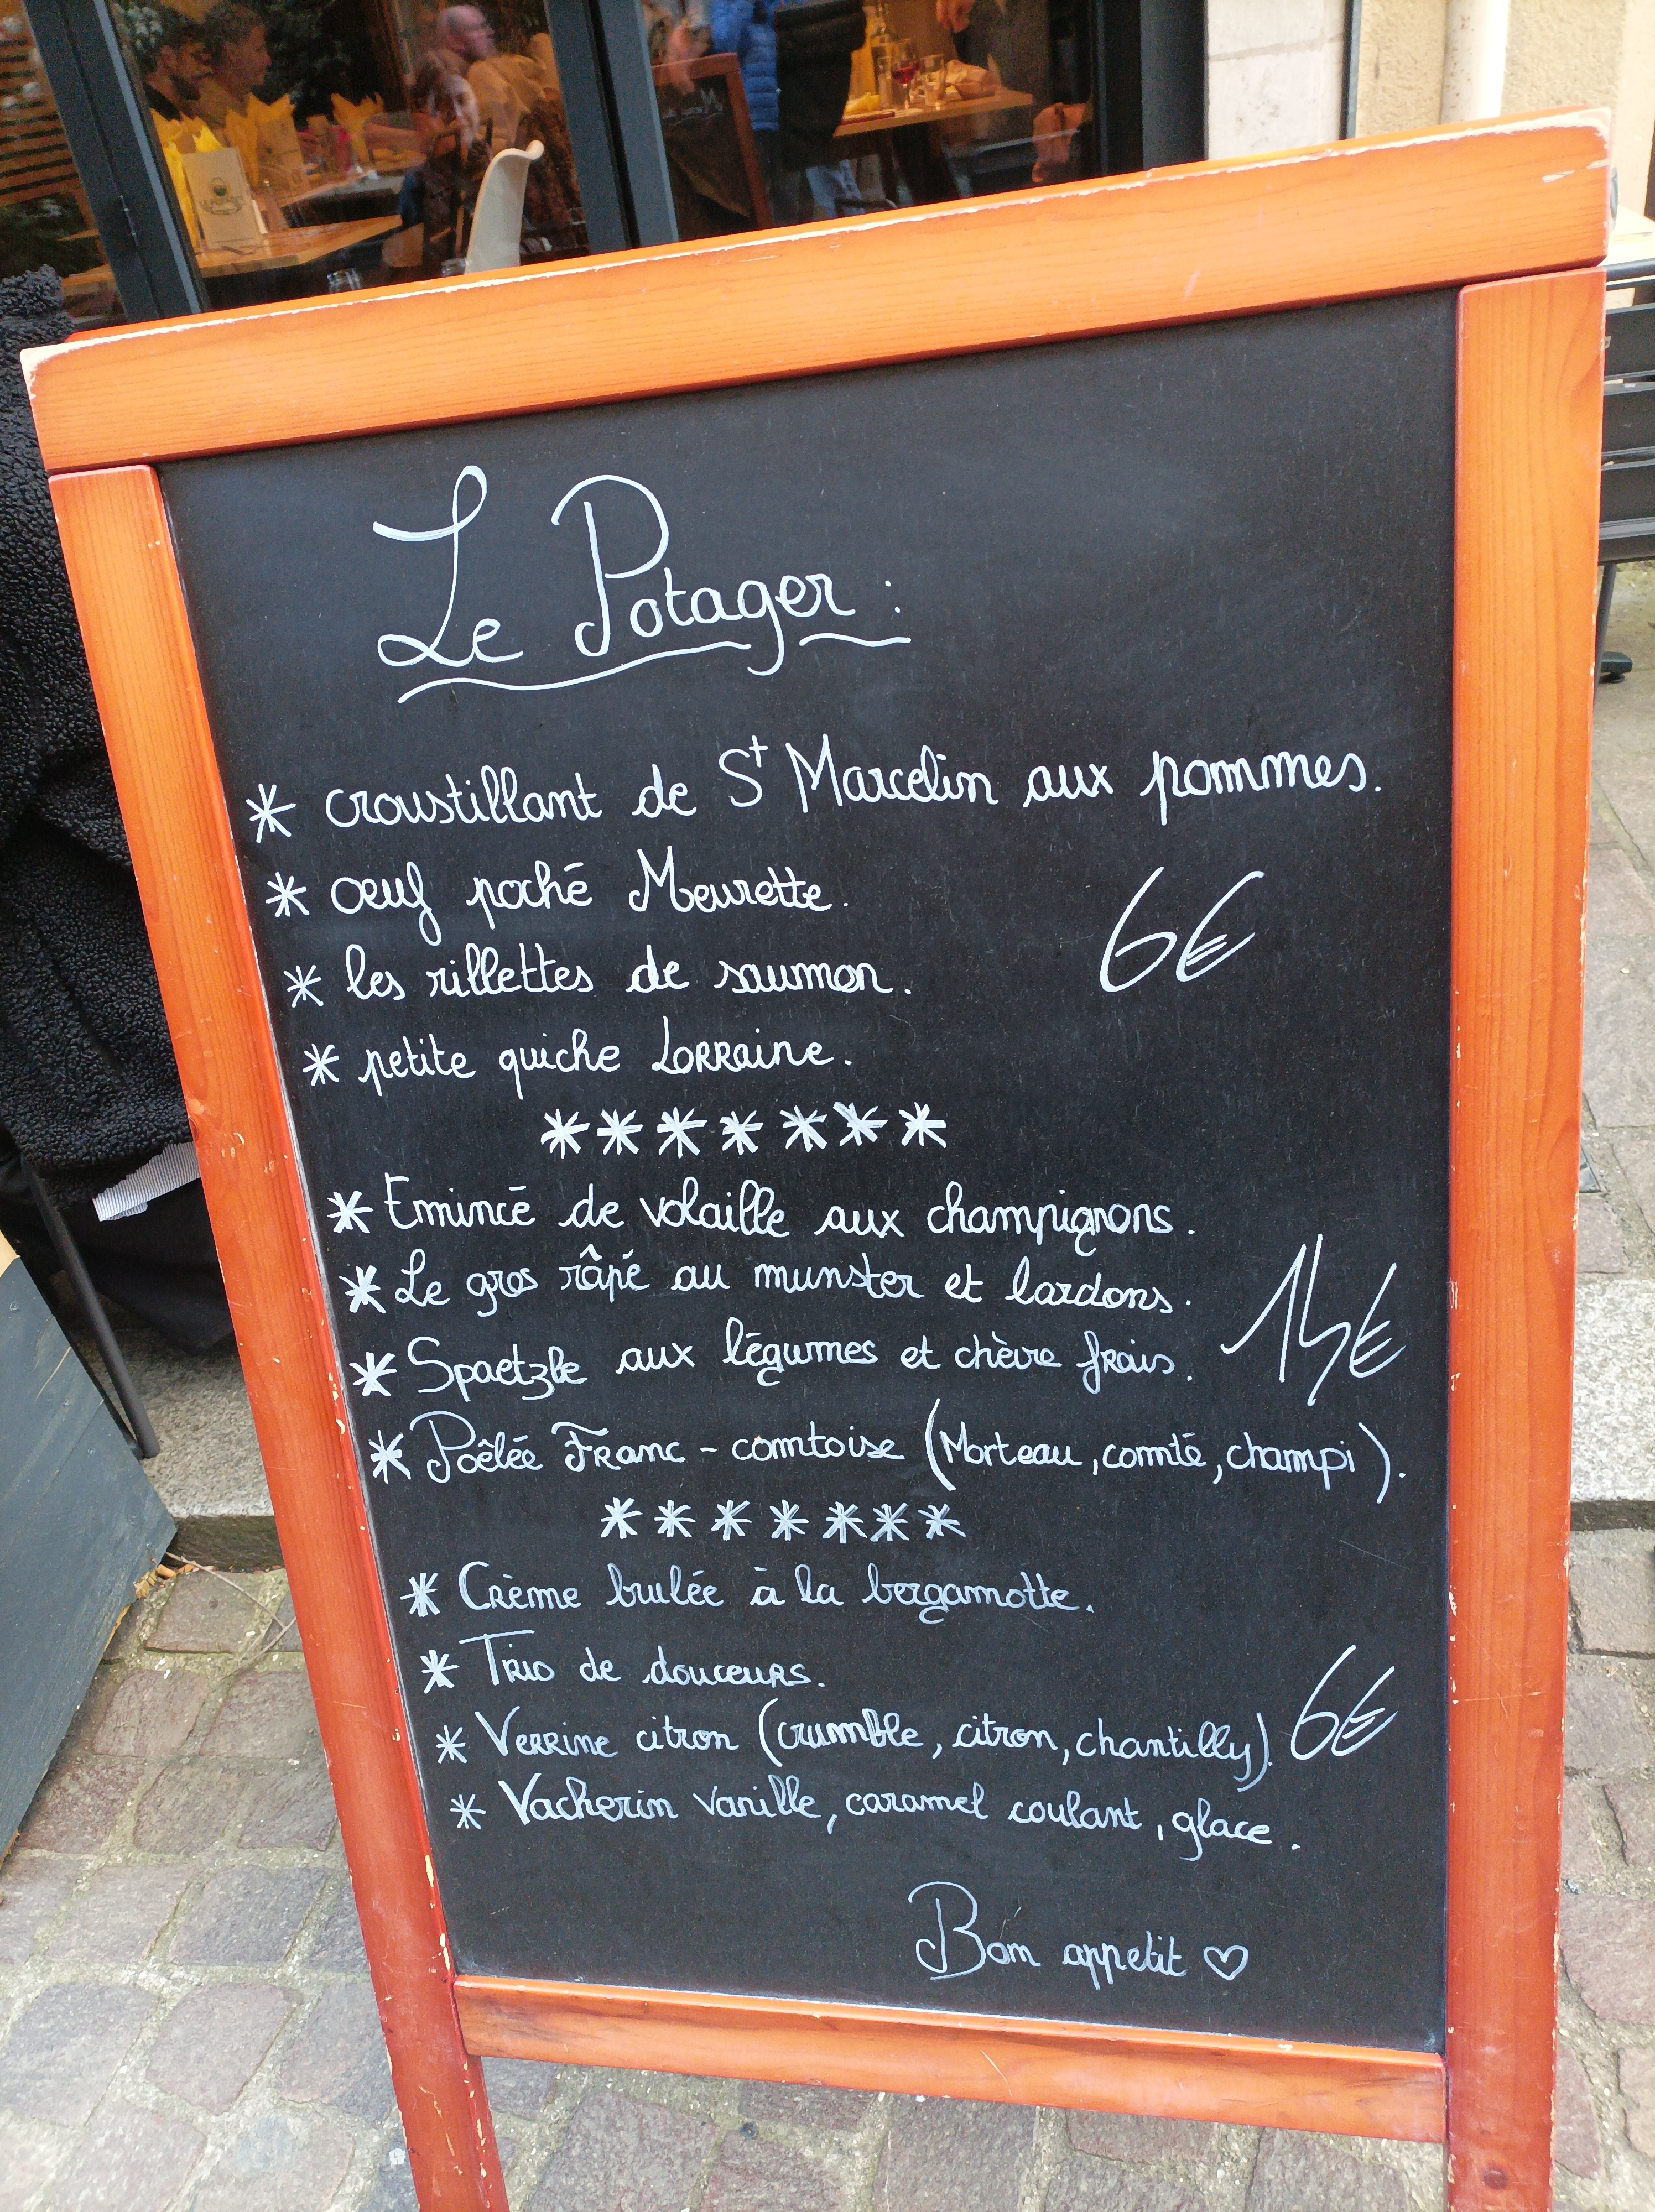 Le Potager :
* croustillant de St Marcelin aux pommes.
* oeuf poché Meurette.
6€
* les rillettes de saumon.
* petite quiche Lorraine.
*******
* Emincé de volaille aux champignons.
* Le gros râpé au munster et lardons.
14€
* Spaetzle aux légumes et chèvre frais.
* Poêlée Franc-comtoise (Morteau, comté, champi).
*******
* Crème brulée à la bergamotte.
* Trio de douceurs.
* Verrine citron (crumble, citron, chantilly).
6€
* Vacherin vanille, caramel coulant, glace.
Bon appetit ♡